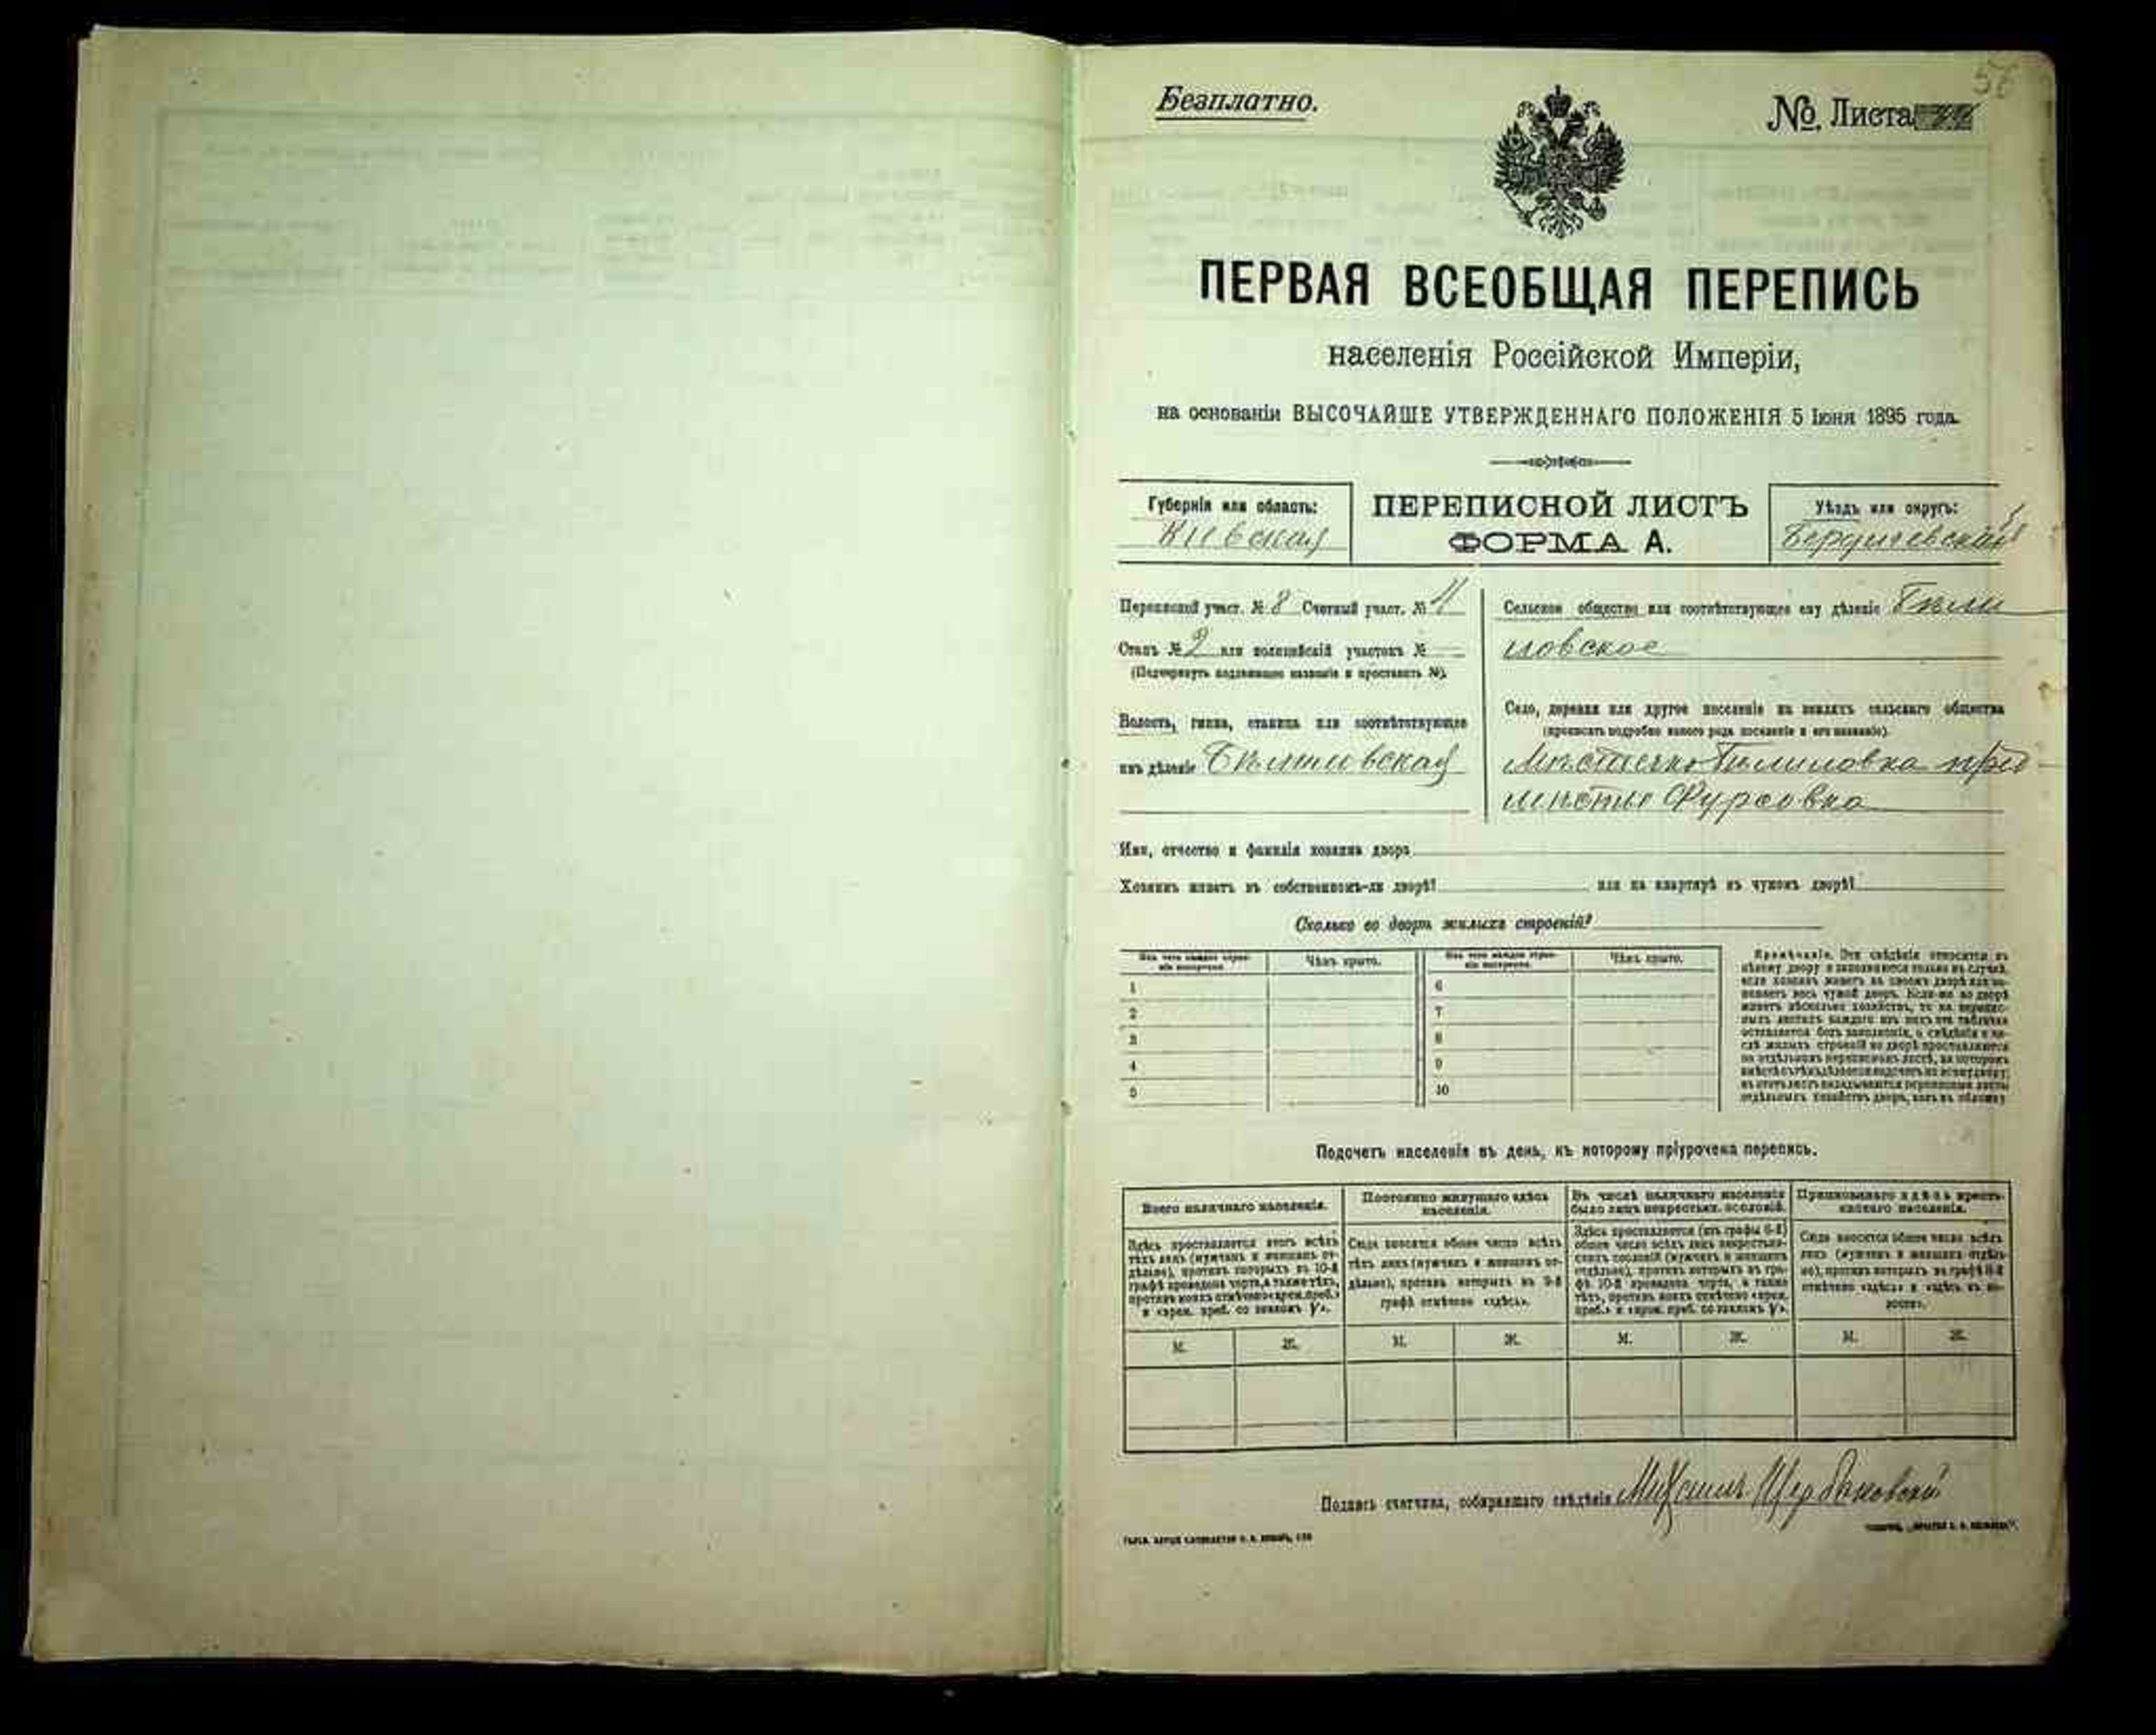 56
Безплатно.
№. Листа
ПЕРВАЯ ВСЕОБЩАЯ ПЕРЕПИСЬ
населенія Россійской Имперіи,
на основаніи ВЫСОЧАЙШЕ УТВЕРЖДЕННАГО ПОЛОЖЕНІЯ 5 Іюня 1895 года.
Губернія или область:
Кіевская
ПЕРЕПИСНОЙ ЛИСТЪ
ФОРМА А.
Уѣздъ или округъ:
Бердичевскій
Переписной участ. № 8 Счетный участ. №
Станъ № 2 или полицейскій участокъ №
(Подчеркнуть надлежащее названіе и проставить №).
Волость, гмина, станица или соотвѣтствующее
имъ дѣленіе Бѣлиловская
Сельское общество или соотвѣтствующее ему дѣленіе Бѣли
ловское
Село, деревня или другое поселеніе на земляхъ сельскаго общества
(прописать подробно какого рода поселеніе и его названіе).
Мѣстечко Бѣлиловка пред-
мѣстье Фурсовка
Имя, отчество и фамилія хозяина двора
Хозяинъ живетъ въ собственномъ-ли дворѣ? или на квартирѣ въ чужомъ дворѣ?
Сколько во дворѣ жилыхъ строеній?
Изъ чего каждое строе-
ніе построено.
Чѣмъ крыто.
Изъ чего каждое строе-
ніе построено.
Чѣмъ крыто.
1
2
3
4
5
6
7
8
9
10
Примѣчаніе. Эти свѣдѣнія относятся къ
цѣлому двору и заполняются только въ случаѣ,
если хозяинъ живетъ въ своемъ дворѣ или за-
нимаетъ весь чужой дворъ. Если-же во дворѣ
живетъ нѣсколько хозяйствъ, то на перепис-
ныхъ листахъ каждаго изъ нихъ эта табличка
оставляется безъ заполненія, а свѣдѣнія о чи-
слѣ жилыхъ строеній во дворѣ проставляются
на отдѣльномъ переписномъ листѣ, на которомъ
въ этотъ листъ вкладываются переписные листы
отдѣльныхъ хозяйствъ двора, какъ въ обложку
Подсчетъ населенія въ день, къ которому пріурочена перепись.
Всего наличнаго населенія.
Постоянно живущаго здѣсь
населенія.
Въ числѣ наличнаго населенія
было лицъ некрестьян. сословій.
Приписаннаго здѣсь кресть-
янскаго населенія.
Здѣсь проставляется итогъ всѣхъ
тѣхъ лицъ (мужчинъ и женщинъ от-
дѣльно), противъ которыхъ въ 10-й
графѣ проведена черта, а также тѣхъ,
противъ коихъ отмѣчено «врем. преб.»
и «врем. преб. со знакомъ V».
Сюда вносится общее число всѣхъ
тѣхъ лицъ (мужчинъ и женщинъ от-
дѣльно), противъ которыхъ въ 9-й
графѣ отмѣчено «здѣсь».
Здѣсь проставляется (изъ графы 6-й)
общее число всѣхъ лицъ некрестьян-
скихъ сословій (мужчинъ и женщинъ
отдѣльно), противъ которыхъ въ гра-
фѣ 10-й проведена черта, а также
тѣхъ, противъ коихъ отмѣчено «врем.
преб.» и «врем. преб. со знакомъ V».
Сюда вносится общее число всѣхъ
лицъ (мужчинъ и женщинъ отдѣль-
но), противъ которыхъ въ графѣ 8-й
отмѣчено «здѣсь» и «здѣсь въ во-
лости».
М. Ж. М. Ж. М. Ж. М. Ж.
Подпись счетчика, собиравшаго свѣдѣнія